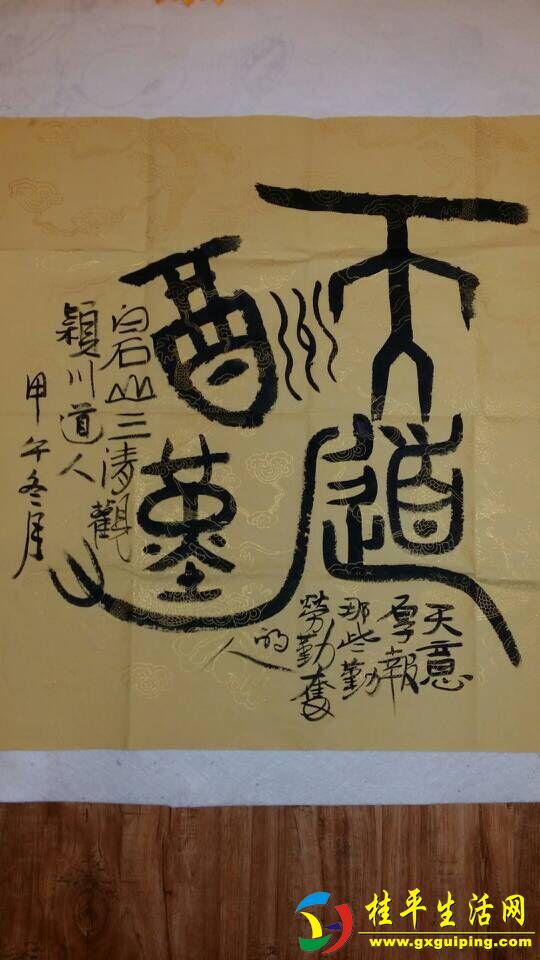 天道
酬勤
天意
厚報
那些勤
勞勤奮
的
人
白石山三清觀
穎川道人
甲午冬月
桂平生活网
www.gxguiping.com